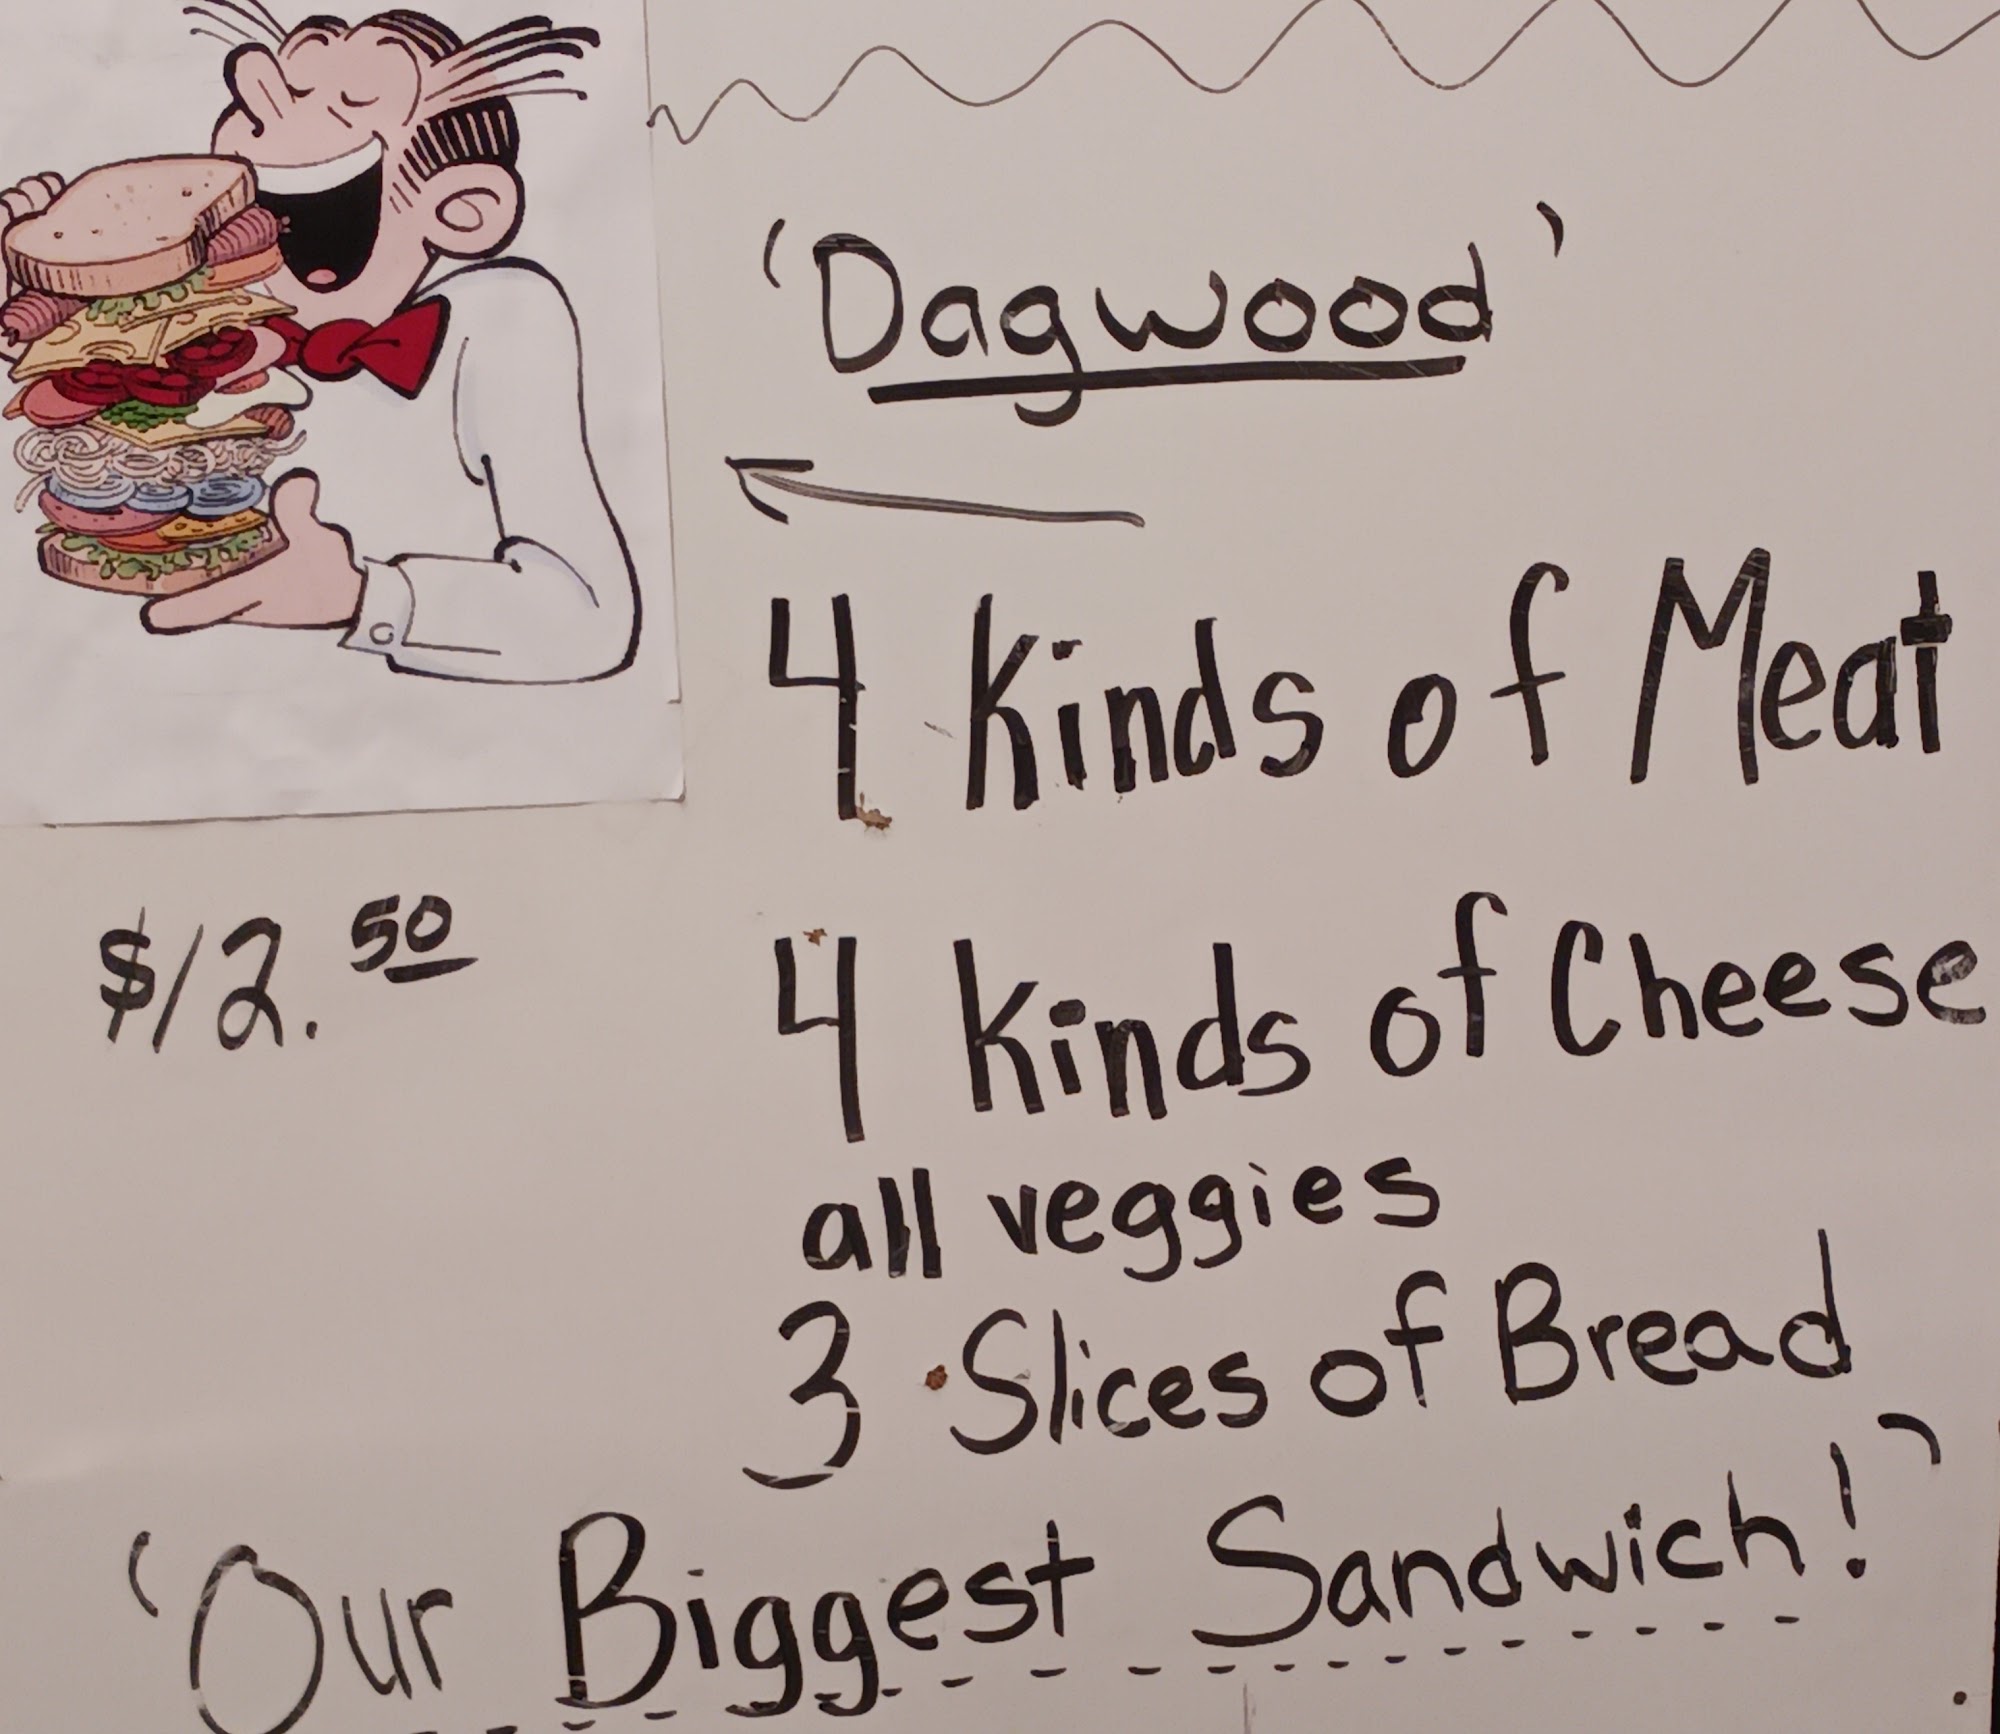 'Dagwood'
4 Kinds of Meat
$12.50
4 Kinds of Cheese
all veggies
3 Slices of Bread
'Our Biggest Sandwich!'